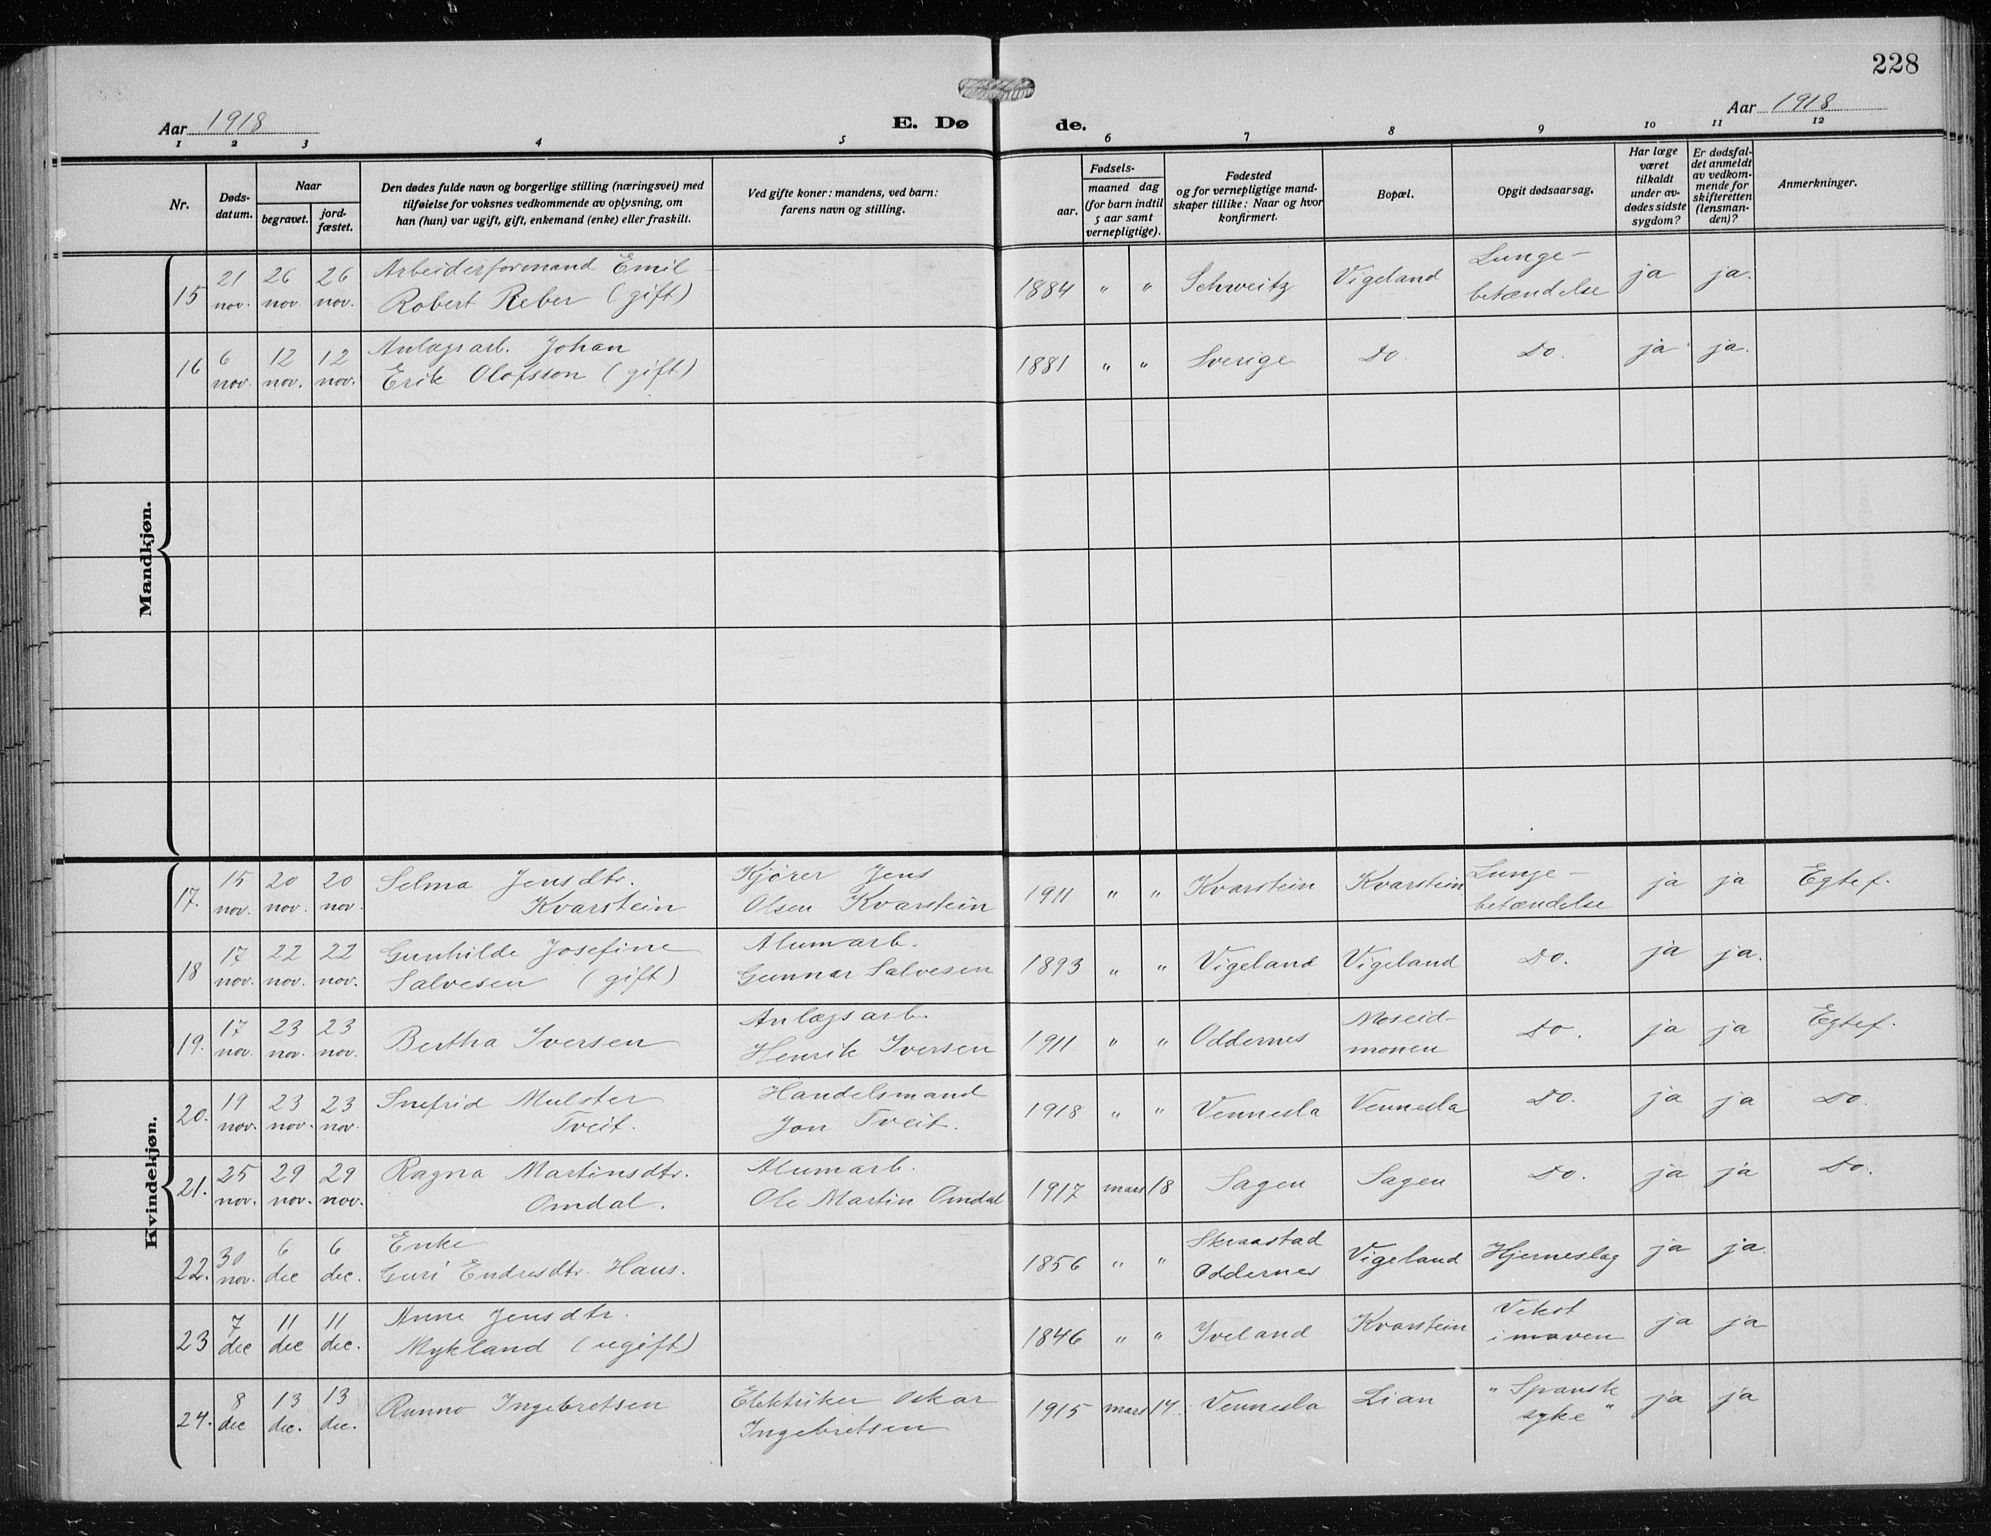 228
Aar 1918
E. Dø
de.
Aar 1918
1 2 3 4 5 6 7 8 9 10 11 12
Nr.
Døds-
datum.
Naar
begravet.
jord-
fæstet.
Den dødes fulde navn og borgerlige stilling (næringsvei) med
tilføielse for voksnes vedkommende av oplysning, om
han (hun) var ugift, gift, enkemand (enke) eller fraskilt.
Ved gifte koner: mandens, ved barn:
farens navn og stilling.
Fødsels-
aar.
maaned dag
(for barn indtil
5 aar samt
vernepligtige).
Fødested
og for vernepligtige mand-
skaper tillike: Naar og hvor
konfirmert.
Bopæl.
Opgit dødsaarsag.
Har læge
været
tilkaldt
under av-
dødes sidste
sygdom?
Er dødsfal-
det anmeldt
av vedkom-
mende for
skifteretten
(lensman-
den)?
Anmerkninger.
Mandkjøn.
15 21 nov. 26 nov. 26 nov. Arbeiderformand Emil
Robert Reber (gift) 1884 " " Schweitz Vigeland Lunge-
betændelse ja ja.
16 6 nov. 12 nov. 12 nov. Anlægsarb. Johan
Erik Olofsson (gift) 1881 " " Sverige Do. Do. ja ja.
Kvindekjøn.
17. 15 nov. 20 nov. 20 nov. Selma Jensdtr.
Kvarstein Kjører Jens
Olsen Kvarstein 1911 " " Kvarstein Kvarstein Lunge-
betændelse ja ja Egtef.
18 17 nov. 22 nov. 22 nov. Gunhilde Josefine
Salvesen (gift) Alumarb.
Gunnar Salvesen 1893 " " Vigeland Vigeland Do. ja ja.
19. 17 nov. 23 nov. 23 nov. Bertha Iversen Anlægsarb.
Henrik Iversen 1911 " " Oddernes Moseid-
monen Do. ja ja Egtef.
20. 19 nov. 23 nov. 23 nov. Snefrid Mulster
Tveit. Handelsmand
Jon Tveit. 1918 " " Vennesla Vennesla Do. ja ja Do.
21. 25 nov. 29 nov. 29 nov. Ragna Martinsdtr.
Omdal. Alumarb.
Ole Martin Omdal 1917 mars 18 Sagen Sagen Do. ja ja Do.
22. 30 nov. 6 dec 6 dec. Enke
Guri Endresdtr. Haus. 1856 " " Skraastad
Oddernes Vigeland Hjerneslag ja ja.
23 7 dec 11 dec 11 dec. Anne Jensdtr.
Mykland (ugift) 1846 " " Iveland Kvarstein Vekst
i maven ja ja
24. 8 dec 13 dec. 13 dec. Ingebretsen Elektriker Oskar
Ingebretsen 1915 mars 14. Vennesla Lian "Spansk
syke" ja ja